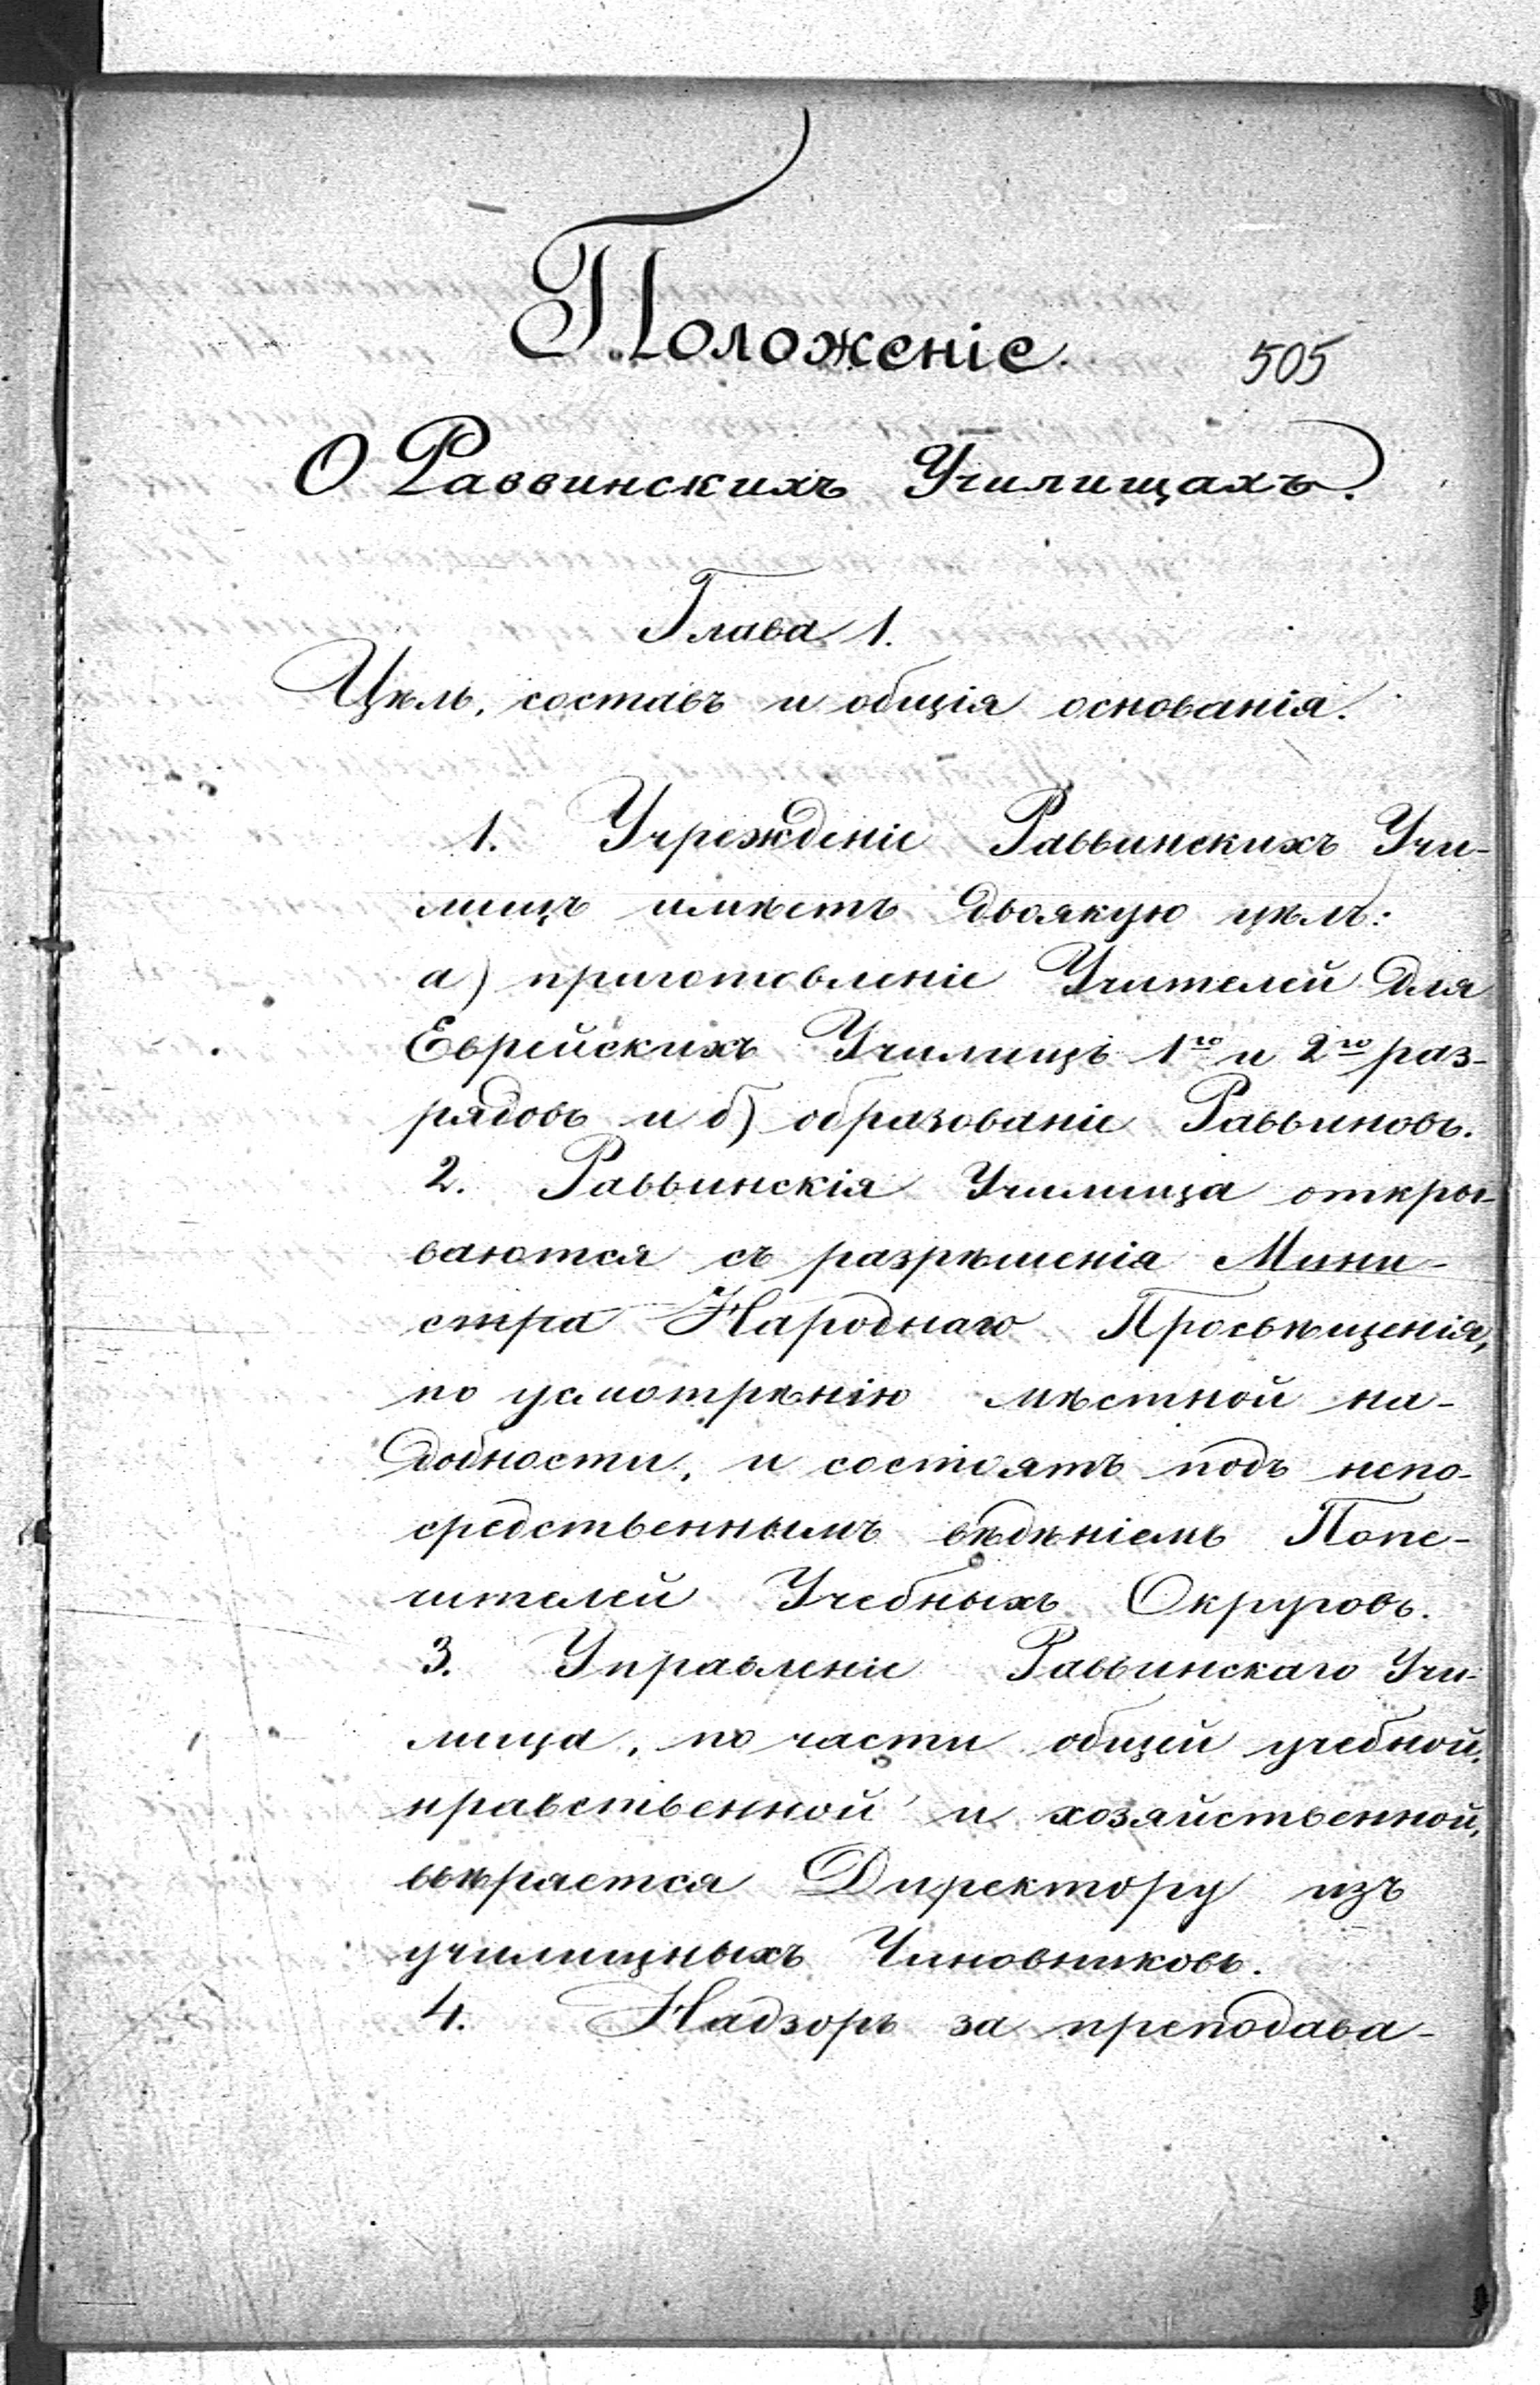 Положеніе.
505
О Раввинскихъ Училищахъ.
Глава 1.
Цѣль, составъ и общія основанія.
1. Учрежденіе Раввинскихъ Учи-
лищъ имѣетъ двоякую цѣль:
а) приготовленіе Учителей для
Еврейскихъ Училищъ 1го и 2го раз-
рядовъ и б) образованіе Раввиновъ.
2. Раввинскія Училища откры-
ваются съ разрѣшенія Мини-
стра Народнаго Просвѣщенія,
по усмотрѣнію мѣстной на-
добности, и состоятъ подъ непо-
средственнымъ вѣдѣніемъ Попе-
чителей Учебныхъ Округовъ.
3. Управленіе Раввинскаго Учи-
лища, по части общей учебной,
нравственной и хозяйственной,
ввѣряется Директору изъ
училищныхъ Чиновниковъ.
4. Надзоръ за преподава-